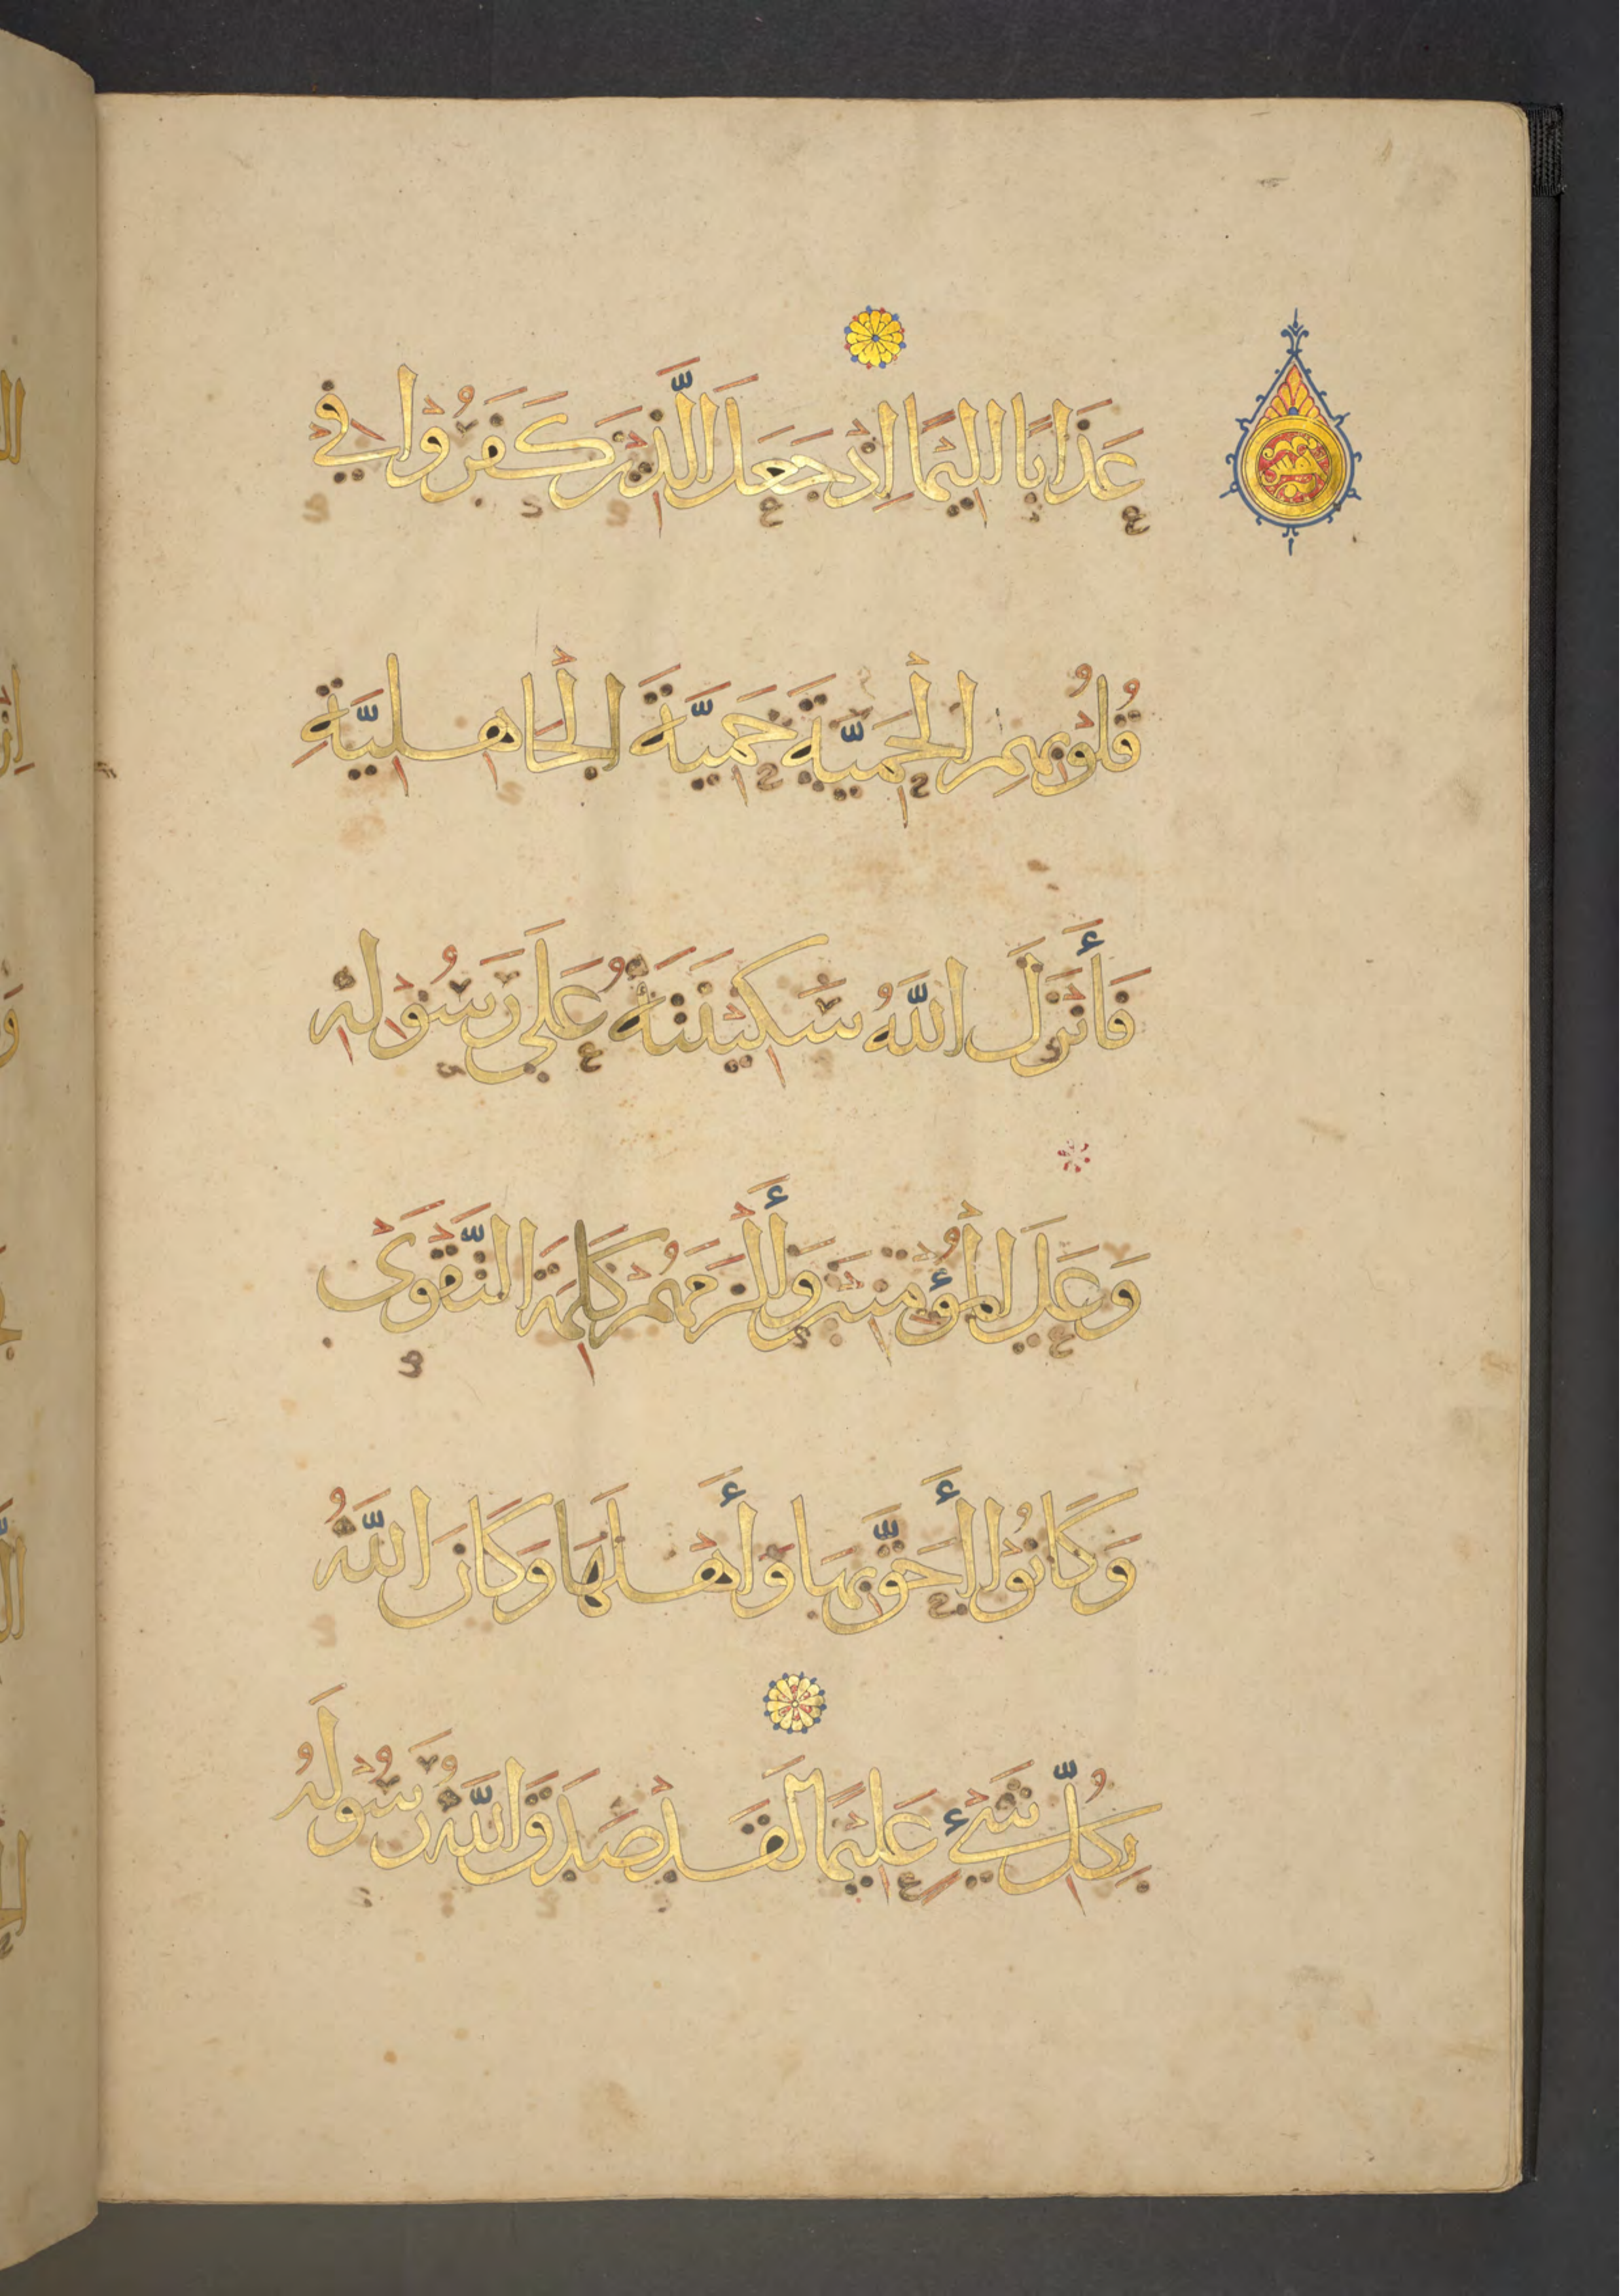 عَذَابًا اليْمًا اِذْ جَعَلَ الَّذِيْنَ كَفَرُوْا فِيْ
قُلُوْبِهِمِ الْحَمِيَّةَ حَمِيَّةَ الْجَاهِلِيَّةِ
فَأَنْزَلَ اللَّهُ سَكِيْنَتَهُ عَلَى رَسُوْلِهِ
وَعَلَى الْمُؤْمِنِيْنَ وَأَلْزَمَهُمْ كَلِمَةَ التَّقْوَى
وَكَانُوْا أَحَقَّ بِهَا وَأَهْلَهَا وَكَانَ اللَّهُ
بِكُلِّ شَيْءٍ عَلِيْمًا لَقَدْ صَدَقَ اللَّهُ رَسُوْلَهُ